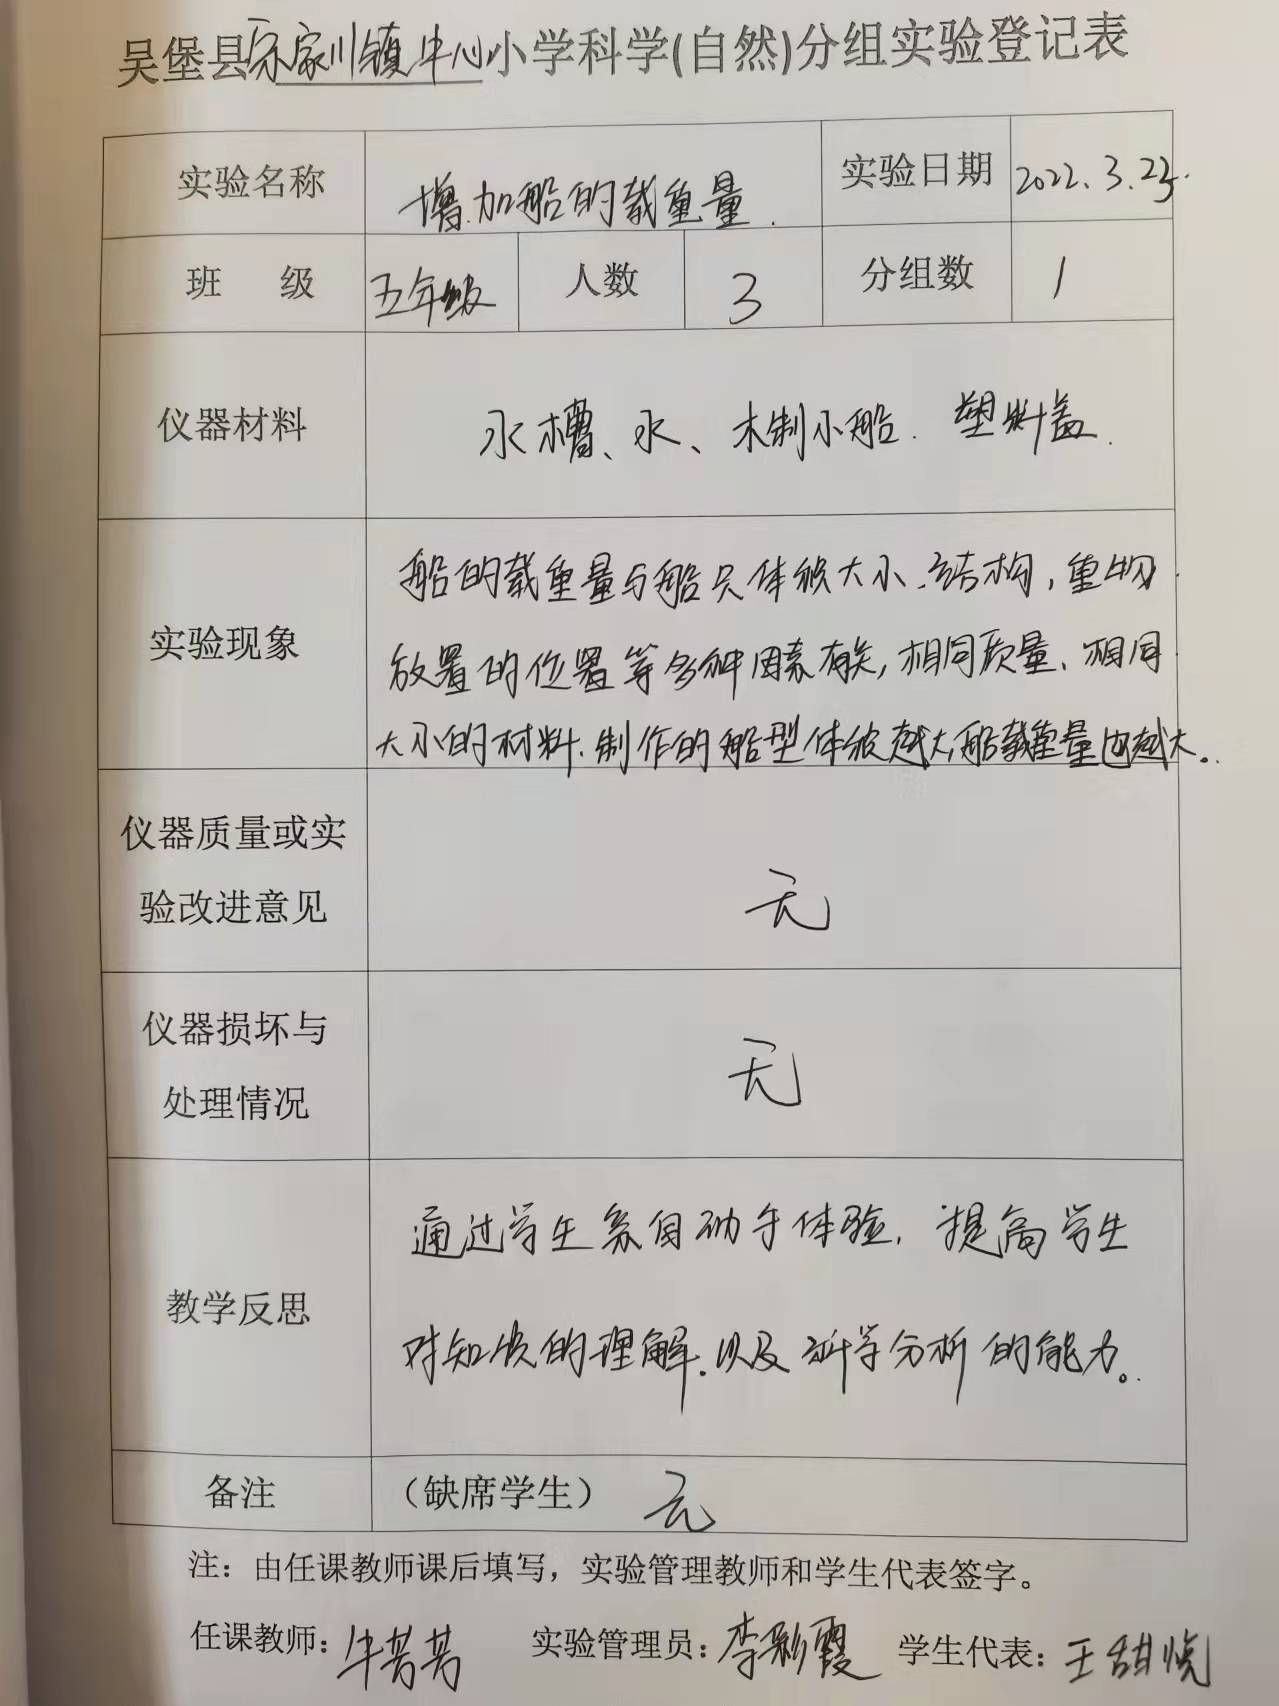 吴堡县宋家川镇中心小学科学(自然)分组实验登记表
实验名称 增加船的载重量. 实验日期 2022.3.23.
班 级 五年级 人数 3 分组数 1
仪器材料 水槽、水、木制小船. 塑料盖.
实验现象
船的载重量与船只体积大小、结构,重物
放置的位置等多种因素有关,相同质量、相同
大小的材料.制作的船型体积越大,船载重量也越大。
仪器质量或实
验改进意见
无
仪器损坏与
处理情况
无
教学反思
通过学生亲自动手体验,提高学生
对知识的理解.以及科学分析的能力。
备注 (缺席学生) 无
注:由任课教师课后填写,实验管理教师和学生代表签字。
任课教师:牛芳芳 实验管理员:李彩霞 学生代表:王甜悦